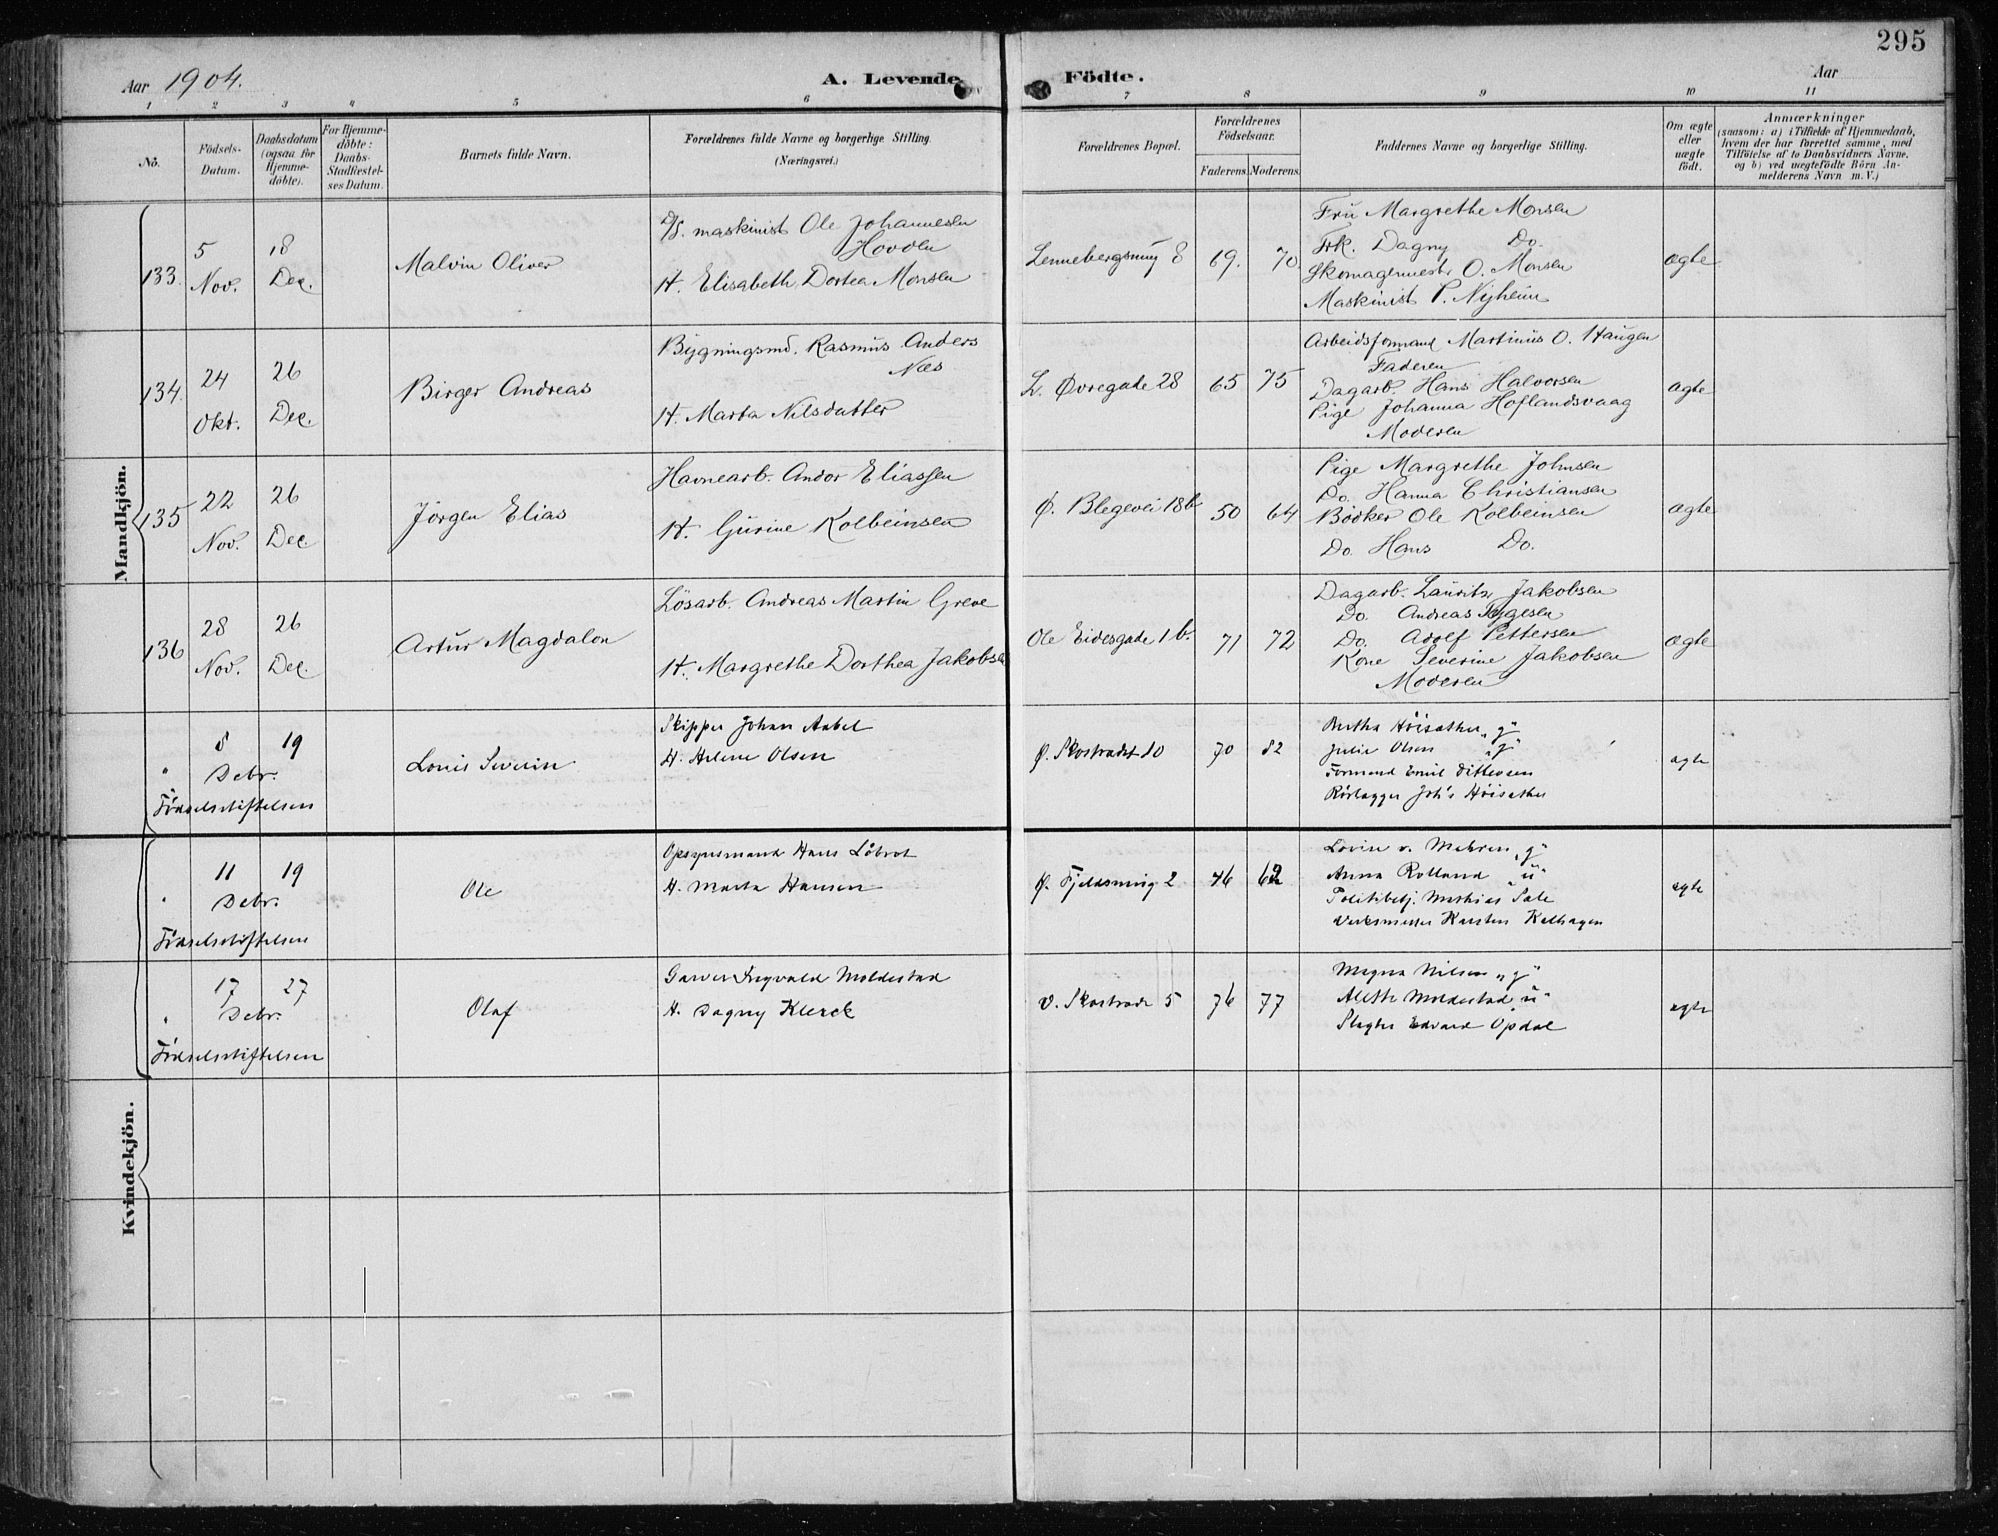 295
Aar 1904.
A. Levende Födte.
Aar
1 2 3 4 5 6 7 8 9 10 11
No.
Födsels-Datum.
Daabsdatum (ogsaa for Hjemme-döbte).
For Hjemme-döbte: Daabs-Stadfæstel-ses Datum.
Barnets fulde Navn.
Forældrenes fulde Navne og borgerlige Stilling.
(Næringsvei.)
Forældrenes Bopæl.
Forældrenes Födselsaar.
Faderens. Moderens.
Faddernes Navne og borgerlige Stilling.
Om ægte eller uægte födt.
Anmærkninger
(saasom: a) i Tilfælde af Hjemmedaab,
hvem der har forrettet samme, med
Tilföielse af to Daabsvidners Navne,
og b) ved uægtefödte Börn An-
melderens Navn m. V.)
Mandkjön.
133. 5 Nov. 18 Dec.
Malvin Oliver
D/S. maskinist Ole Johannesen
Hovden
H. Elisabeth Dortea Monsen
Lennebergsmug 8 69. 70
Fru Margrethe Monsen
Frk. Dagny Do.
Skomagermestr O. Monsen
Maskinist P. Nyheim
ægte
134. 24 Okt. 26 Dec.
Birger Andreas
Bygningsmd. Rasmus Anders
Næs
H. Marta Nilsdatter
L. Øvregade 28 65 75
Arbeidsformand Martinus O. Haugen
Faderen
Dagarb. Hans Halvorsen
Pige Johanna Hoflandsvaag
Moderen
ægte
135 22 Nov. 26 Dec
Jörgen Elias
Havnearb. Andor Eliassen
H. Gurine Kolbeinsen
Ø. Blegevei 18b 50 64
Pige Margrethe Johnsen
Do. Hanna Christiansen
Bödker Ole Kolbeinsen
Do. Hans Do.
ægte
136 28 Nov. 26 Dec.
Artur Magdalon
Lösarb. Andreas Martin Greve
H. Margrethe Dorthea Jakobsen
Ole Eidesgade 1 b. 71 72
Dagarb. Lauritz Jakobsen
Do. Andreas Tygesen
Do. Adolf Pettersen
Kone Severine Jakobsen
Moderen
ægte
" 8 19 Debr.
Födselsstiftelsen
Louis Severin
Skipper Johan Aabel
H. Helene Olsen
Ø. Skostrædet 10 70 82
Bertha Höisæther „g"
Julie Olsen „g"
Formand Emil Dittevsen
Rörlægger Joh's Höisæther
ægte
" 11 19 Debr.
Födselsstiftelsen
Ole
Opsynsmand Hans Löbrot
H. Marta Hansen
Ø. Fjeldsmug 2 46 62
Lovise v. Mehren „g"
Anna Rolland „u"
Politibetj. Mathias Sale
Verksmester Karsten
ægte
" 17 27 Debr.
Födselsstiftelsen
Olaf
Garver Ingvald Moldestad
H. Dagny Klerck
V. Skostræde 5 76 77
Magna Nilsen „g"
Alette Moldestad „u"
Slagter Edvard Opdal
ægte
Kvindekjön.